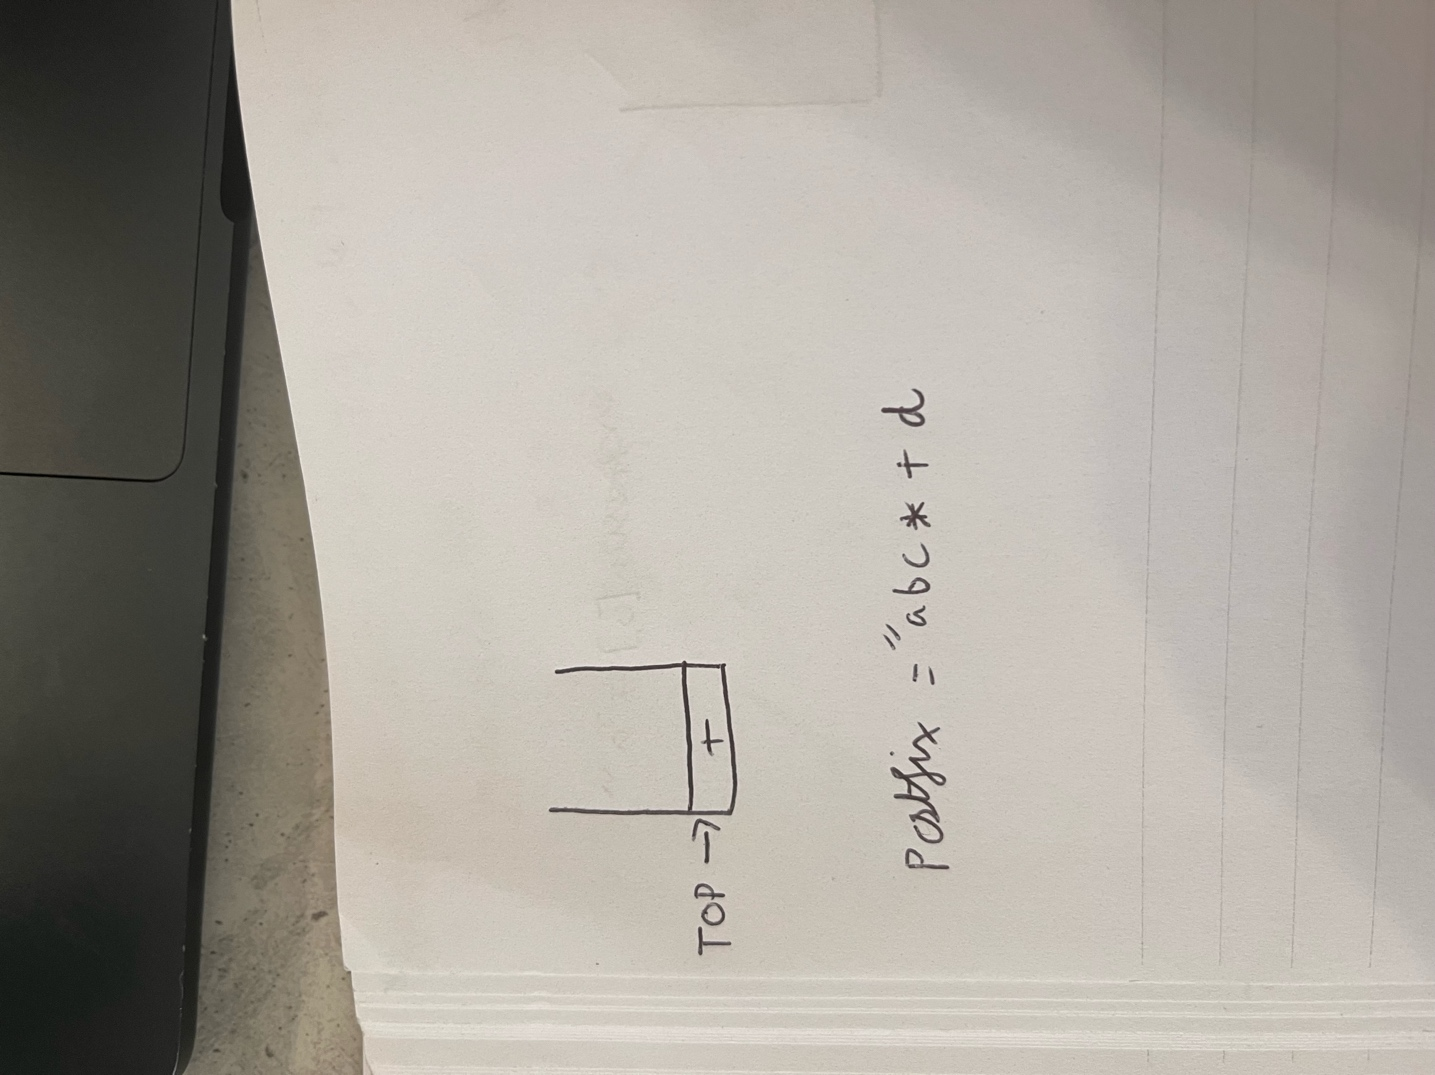 TOP →
+
Postfix = "abc*+d